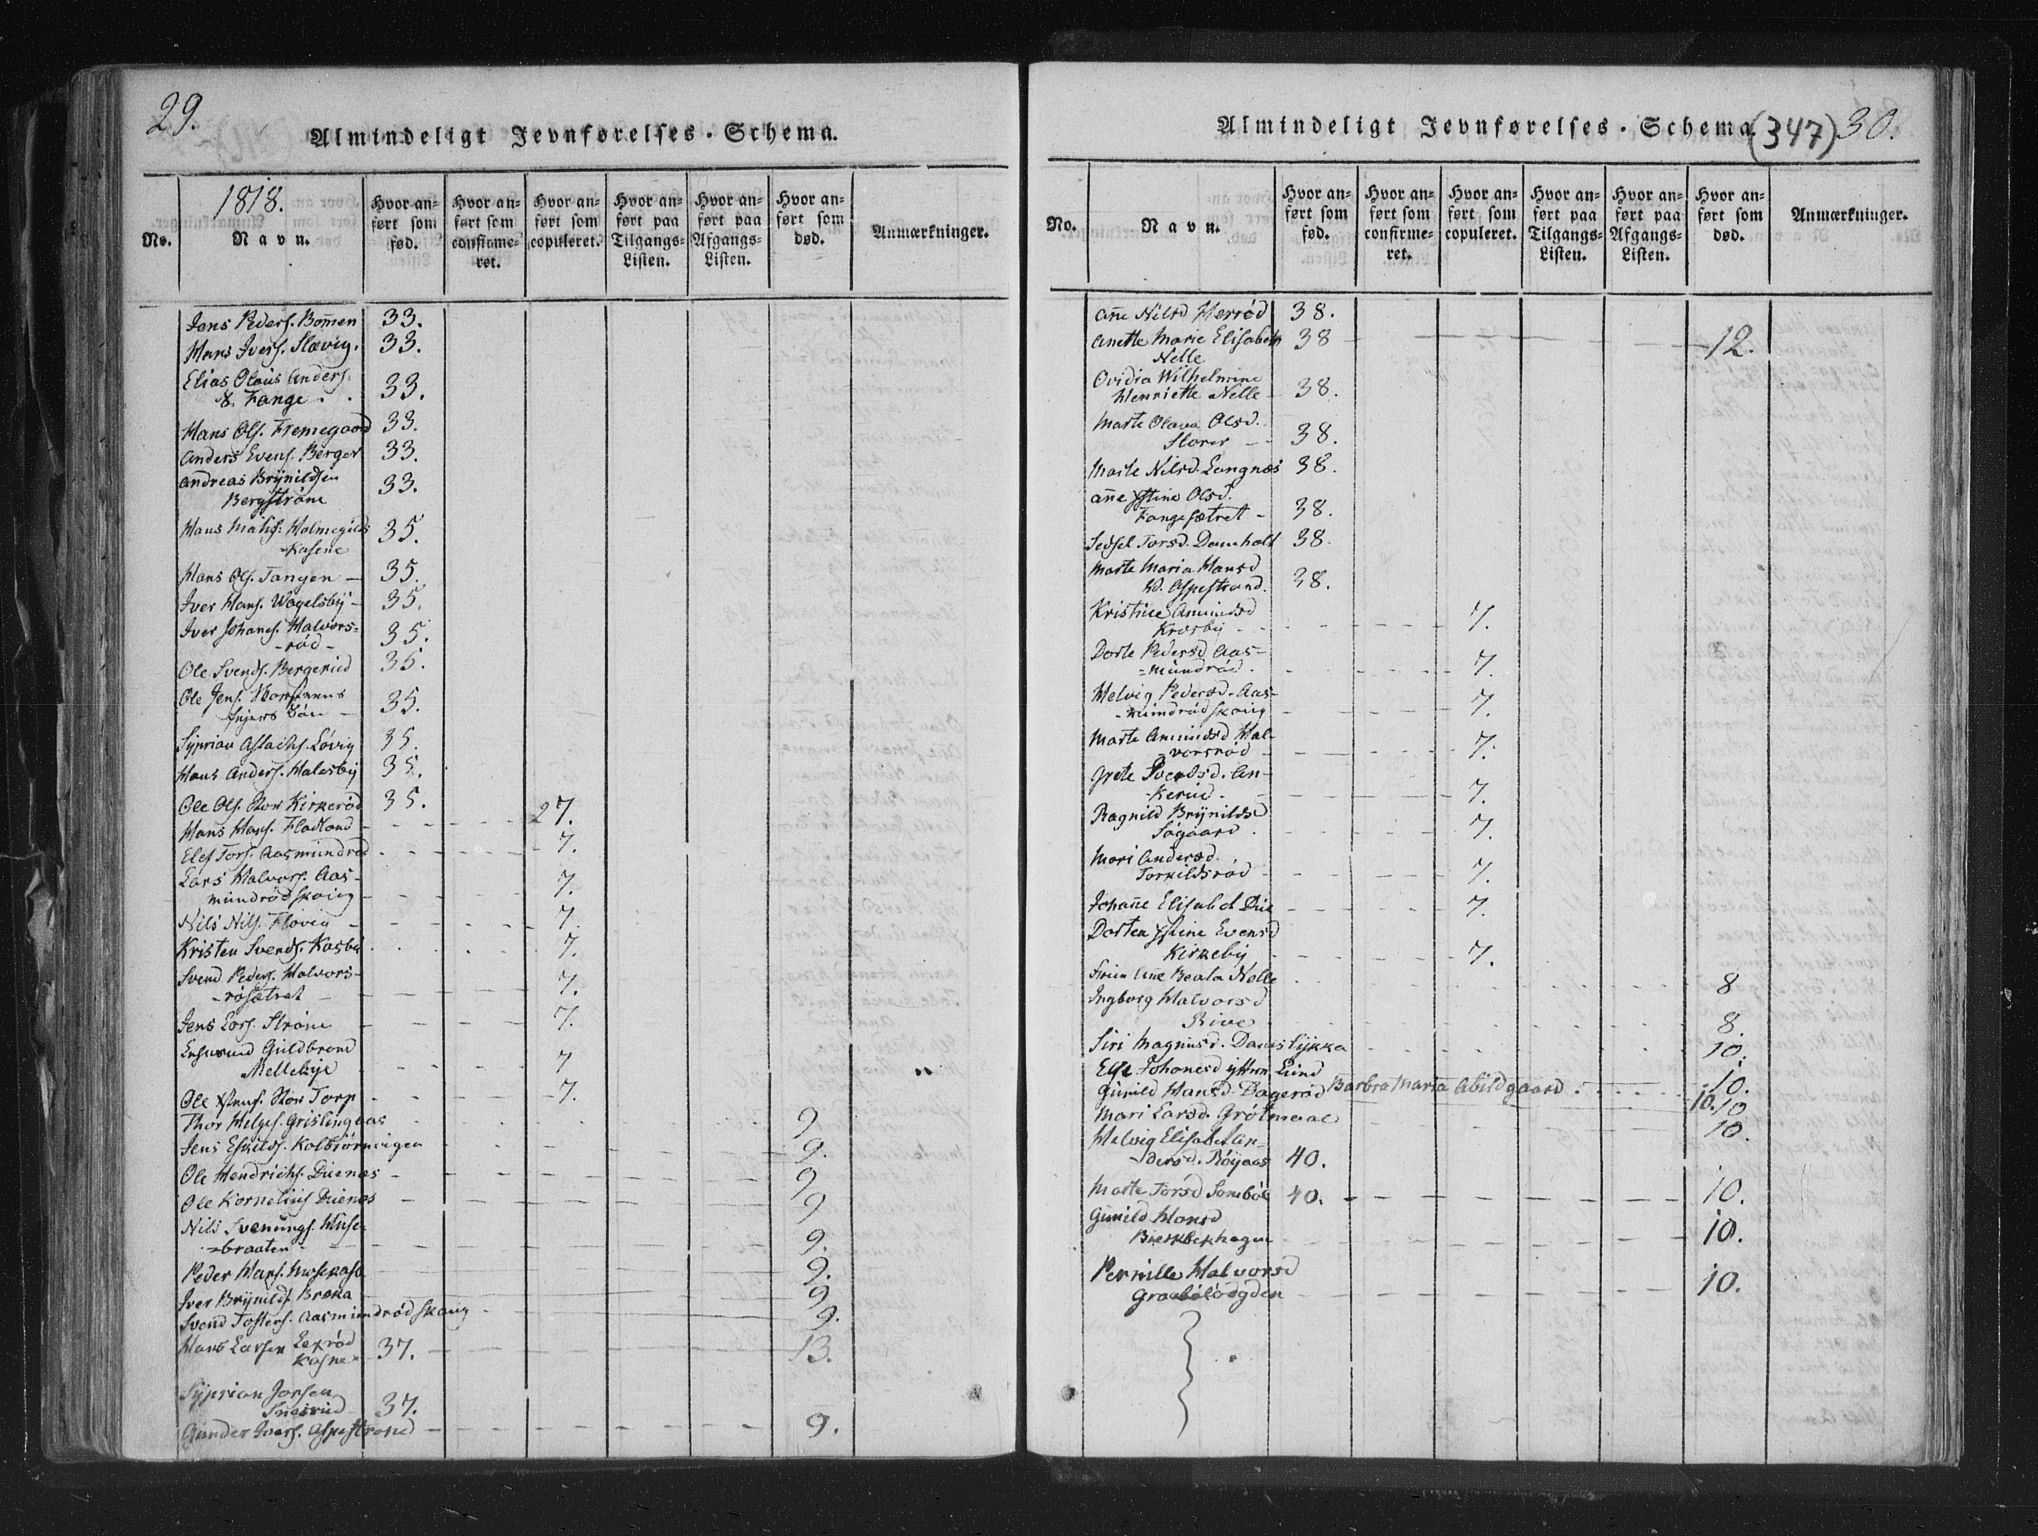 29.
Almindeligt Jevnførelses-Schema.
1818.
No. Navn. Hvor anført som fød. Hvor anført som confirmeret. Hvor anført som copuleret. Hvor anført paa Tilgangs-Listen. Hvor anført paa Afgangs-Listen. Hvor anført som død. Anmærkninger.
Jens Peders. Bom̄en 33.
Hans Ivers. Slævig. 33.
Elias Olaus Anders.
Ø. Tange . . 33.
Hans Ols. Fremegaard 33.
Anders Evens. Berger 33.
Andreas Brÿnildsen
Bergstrøm 33.
Hans Maths. Holmegilds
-kasene 35.
Hans Ols. Tangen — 35.
Iver Hans. Wogelsbÿ - 35.
Iver Johans. Halvors-
-rød - 35.
Ole Svends. Bergerud 35.
Ole Jens.
35.
Syprian Aslachs. Løvig 35.
Hans Anders. Halesby 35.
Ole Ols. Stor Kirkerød 35.
Hans Hans. Flodland - 27.
Elef Tors. Aasmundrød 7.
Lars Halvors. Aas-
mundrød skoug - 7.
Nils Nils. Flovig - 7.
Kristen Svends. Kasbel 7.
Svend Peders. Halvors-
-røsætret - 7.
Jens Lars. Strøm 7.
Guldbrand
Mellebye 7
Ole Xstens. Stor Torp 7.
Thor Helges. Grislingaas 9
Jens Eskilds. Kolbiørnvigen 9.
Ole Hendrichs. Duenæs - 9
Ole Kornelius Duenæs 9
Nils Svenungs. Huse-
-braaten 9.
Peder Hans. Mosekasa 9.
Iver Brÿnilds. Bræka 9
Svend Tosters. Aasmundrød skoug 9.
Hans Larsen Lexrød
Kasne 37. 13.
Syprian Jorsen
37.
Gunder Ivers. Aspestrand 9.
Almindeligt Jevnførelses-Schema (347) 30.
No. Navn. Hvor anført som fød. Hvor anført som confirmeret. Hvor anført som copuleret. Hvor anført paa Tilgangs-Listen. Hvor anført paa Afgangs-Listen. Hvor anført som død. Anmærkninger.
An̄e Nilsd Herrød 38.
Anette Marie Elisabeth 38 12.
Nelle
Ovidia Wilhelmine
Henriette Nelle 38.
Marte Olava Olsd.
Storer - - 38.
Marte Nilsd. Langnæs 38.
An̄e Xstine Olsd.
Tangesætret - 38.
Sedsel Torsd. Damholt 38.
Marte Maria Hansd
Ø. Aspestrand. 38.
Kristine Amundsd
Krosby 7.
Dorte Pedersd Aas-
-mundrød. 7.
Helvig Pedersd. Aas-
-mundrød skoug 7.
Marte Amundsd Hal-
-vorsrød 7.
Grete Svendsd. An-
-kerud. 7.
Ragnild Brÿnildsd
Søgaard. 7.
Mari Andersd.
Torkildsrød 7.
Johan̄e Elisabet Due 7.
Dorten Xstine Evensd
Kirkeby 7.
An̄e Beata Nelle 8
Ingborg Halvorsd
Rive 8.
Siri Magnusd. Damslykka 10.
Else Johanesd ÿttre Lund 10.
Gunild Hansd. Dagerød Barbra Maria Abildgaard 10. 10
Mari Larsd. Grøtmaal 10.
Helvig Elisabet An-
dersd. Røyaas 40.
Marte Torsd Sambøl 40. 10.
Gunild Hansd
Bierkbekhagen 10.
Pernille Halvorsd
Graabøløddgden 10.